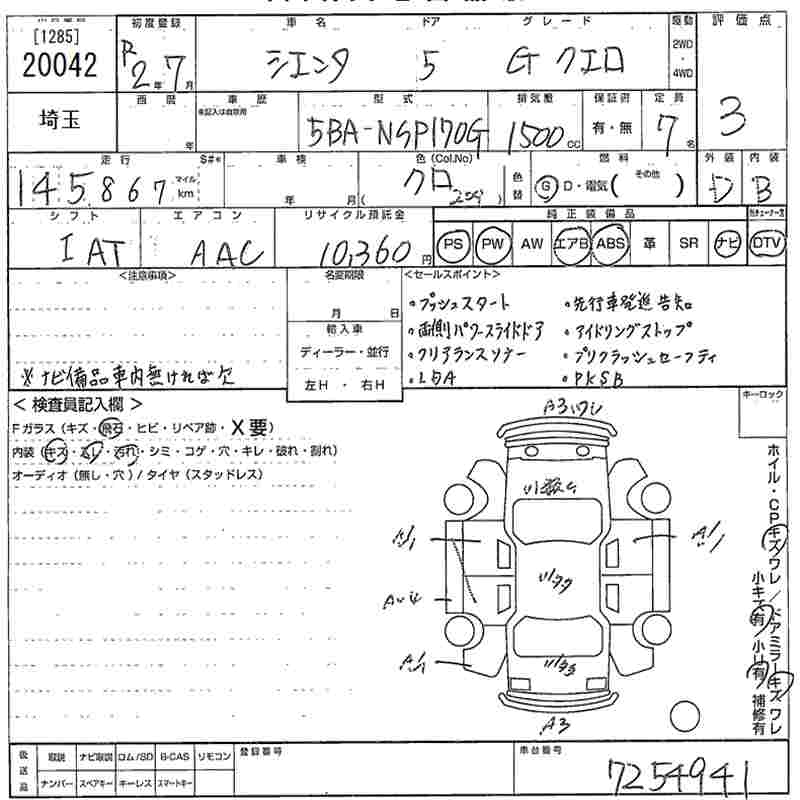 初度登録 車名 ドア グレード 駆動 評価点
[1285]
20042
R2年7月 シエンタ 5 G クエロ 2WD ・ 4WD
3
埼玉
西暦 車歴 型式 排気量 保証書 定員
未記入は自家用
年 5BA-NSP170G 1500cc 有・無 7名
走行 S#* 車検 色(Col.No) 燃料 外装 内装
145867 マイル km 年 月 ( クロ 209 ) 色替 G D・電気( その他 ) D B
シフト エアコン リサイクル預託金 純正装備品
IAT AAC 10,360円 PS PW AW エアB ABS 革 SR ナビ DTV
<注意事項> 名変期限 <セールスポイント>
月 日
・プッシュスタート ・先行車発進告知
輸入車
・両側パワースライドドア ・アイドリングストップ
ディーラー・並行
・クリアランスソナー ・プリクラッシュセーフティ
※ナビ備品車内無ければ欠
左H ・ 右H
・LDA ・PKSB
<検査員記入欄>
キーロック
Fガラス(キズ・飛石・ヒビ・リペア跡・X要)
内装(キズ・スレ・汚れ・シミ・コゲ・穴・キレ・破れ・割れ)
オーディオ(無し・穴)/タイヤ(スタッドレス)
A3
A1
A1
A1
A3
ホイル・CPキズワレ/ドアミラーキズワレ
小キズ有 小凹有 補修有
後送品 取説 ナビ取説 ロム/SD B-CAS リモコン 登録番号 車台番号
ナンバー スペアキー キーレス スマートキー
7254941